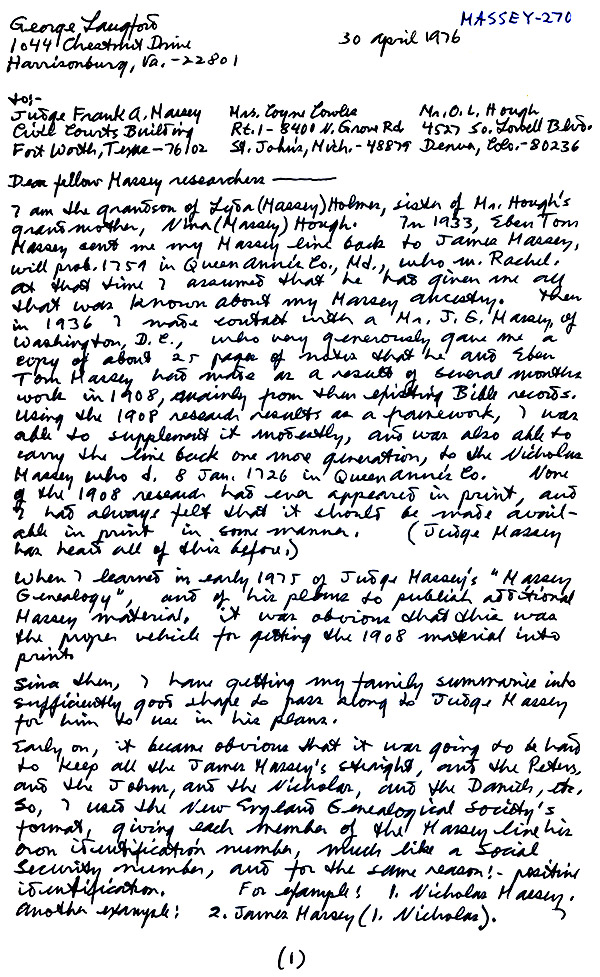 MASSEY-270
George Langford
1044 Chestnut Drive
Harrisonburg, Va. - 22801
30 April 1976
to:-
Judge Frank A. Massey Mrs. Coyne Cowles Mr. O. L. Hough
Civil Courts Building Rt. 1 - 8400 N. Grove Rd 4527 So. Lowell Blvd.
Fort Worth, Texas - 76102 St. Johns, Mich. - 48879 Denver, Colo. - 80236
Dear fellow Massey researchers ———
I am the grandson of Lyda (Massey) Holmer, sister of Mr. Hough's
grandmother, Nina (Massey) Hough. In 1933, Eben Tom
Massey sent me my Massey line back to James Massey,
will prob. 1759 in Queen Anne's Co., Md., who m. Rachel.
At that time I assumed that he had given me all
that was known about my Massey ancestry. Then
in 1936 I made contact with a Mr. J. G. Massey, of
Washington, D.C., who very generously gave me a
copy of about 25 pages of notes that he and Eben
Tom Massey had made as a result of several months
work in 1908, mainly from then existing Bible records.
Using the 1908 research results as a framework, I was
able to supplement it modestly, and was also able to
carry the line back one more generation, to the Nicholas
Massey who d. 8 Jan. 1726 in Queen Anne's Co. None
of the 1908 research had ever appeared in print, and
I had always felt that it should be made avail-
able in print in some manner. (Judge Massey
has heard all of this before.)
When I learned in early 1975 of Judge Massey's "Massey
Genealogy", and of his plans to publish additional
Massey material, it was obvious that this was
the proper vehicle for getting the 1908 material into
print.
Since then, I have getting my family summaries into
sufficiently good shape to pass along to Judge Massey
for him to use in his plans.
Early on, it became obvious that it was going to be hard
to keep all the James Massey's straight, and the Peters,
and the Johns, and the Nicholas, and the Daniels, etc.
So, I used the New England Genealogical Society's
format, giving each member of the Massey line his
own identification number, much like a Social
Security number, and for the same reason:- positive
identification. For example: 1. Nicholas Massey.
Another example: 2. James Massey (1. Nicholas).
(1)